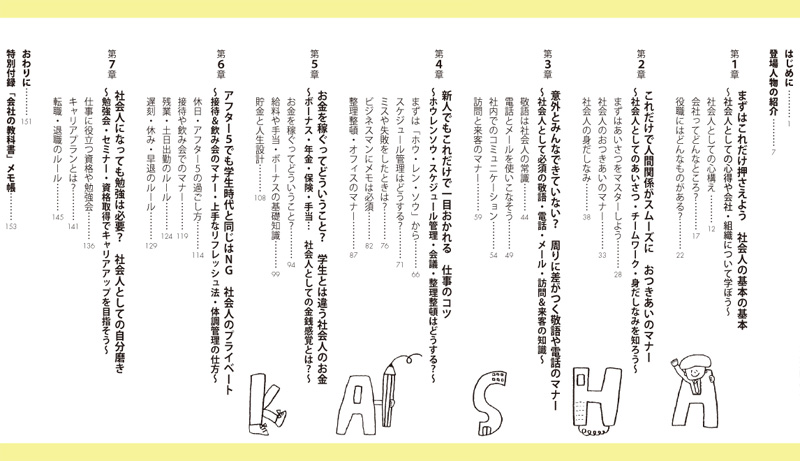 はじめに………1
登場人物の紹介………7
第1章 まずはこれだけ押さえよう 社会人の基本の基本
～社会人としての心得や会社・組織について学ぼう～
社会人としての心構え 12
会社ってどんなところ？ 17
役職にはどんなものがある？ 22
第2章 これだけで人間関係がスムーズに おつきあいのマナー
～社会人としてのあいさつ・チームワーク・身だしなみを知ろう～
まずはあいさつをマスターしよう 28
社会人のおつきあいのマナー 33
社会人の身だしなみ 38
第3章 意外とみんなできていない？ 周りに差がつく敬語や電話のマナー
～社会人として必須の敬語・電話・メール・訪問&来客の知識～
敬語は社会人の常識 44
電話とメールを使いこなそう 49
社内でのコミュニケーション 54
訪問と来客のマナー 59
第4章 新人でもこれだけで一目おかれる 仕事のコツ
～ホウレンソウ・スケジュール管理・会議・整理整頓はどうする？～
まずは「ホウ・レン・ソウ」から 66
スケジュール管理はどうする？ 71
ミスや失敗をしたときは？ 76
ビジネスマンにメモは必須 82
整理整頓・オフィスのマナー 87
第5章 お金を稼ぐってどういうこと？ 学生とは違う社会人のお金
～ボーナス・年金・保険・手当… 社会人としての金銭感覚とは？～
お金を稼ぐってどういうこと？ 94
給料や手当・ボーナスの基礎知識 99
貯金と人生設計 108
第6章 アフター5でも学生時代と同じはNG 社会人のプライベート
～接待&飲み会のマナー・上手なリフレッシュ法・体調管理の仕方～
休日・アフター5の過ごし方 114
接待や飲み会でのマナー 119
残業・土日出勤のルール 124
遅刻・休み・早退のルール 129
第7章 社会人になっても勉強は必要？ 社会人としての自分磨き
～勉強会・セミナー・資格取得でキャリアアップを目指そう～
仕事に役立つ資格や勉強会 136
キャリアプランとは？ 141
転職・退職のルール 145
おわりに………151
特別付録「会社の教科書」メモ帳………153
KAISHA